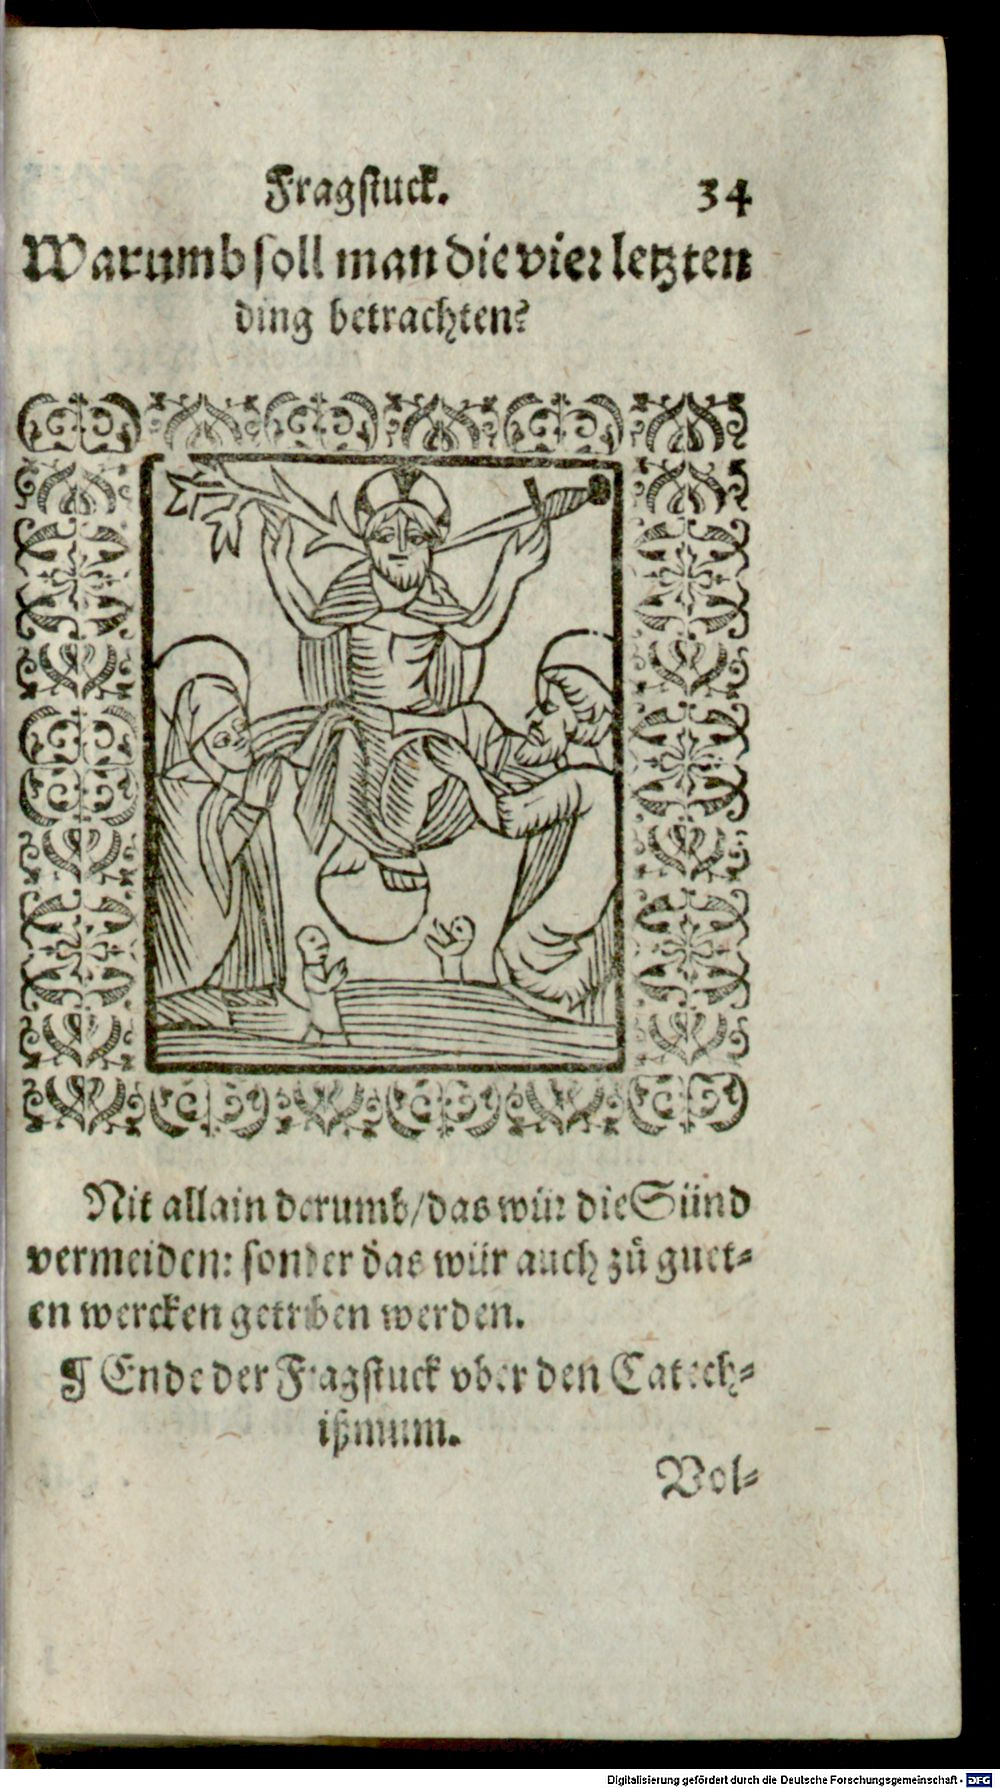 Fragstuck. 34
Warumb soll man die vier letzten
ding betrachten?
Nit allain darumb/das wür die Sünd
vermeiden: sonder das wür auch zů guet-
en wercken getriben werden.
¶ Ende der Fragstuck vber den Catech-
ißmum.
Vol-
Digitalisierung gefördert durch die Deutsche Forschungsgemeinschaft - DFG